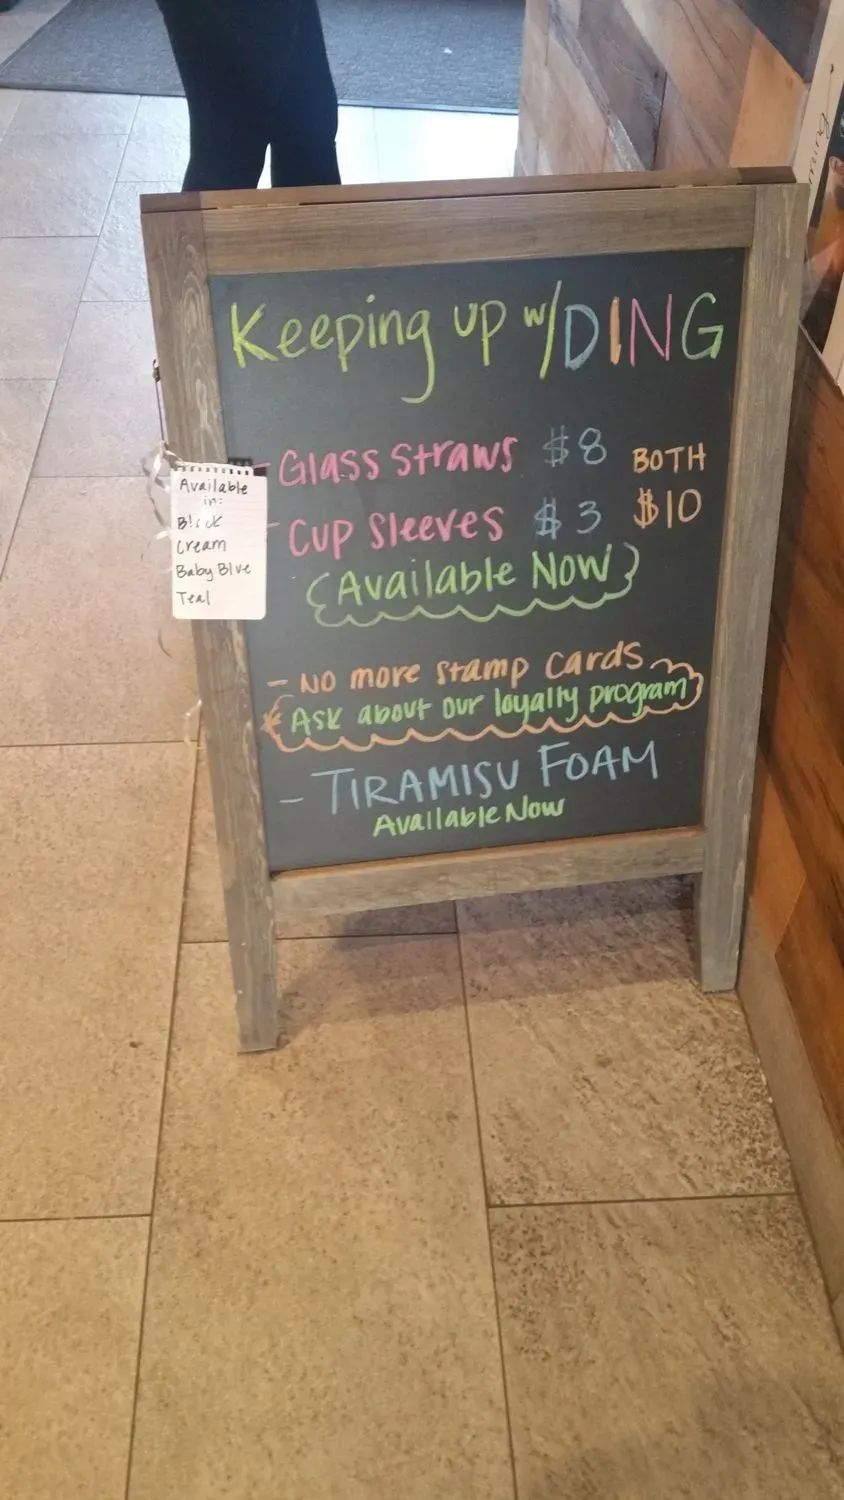 Keeping up w/DING
- Glass Straws $8
- Cup Sleeves $3
BOTH
$10
(Available Now)
Available
in:
Black
Cream
Baby Blue
Teal
- No more stamp cards
* Ask about our loyalty program
- TIRAMISU FOAM
Available Now